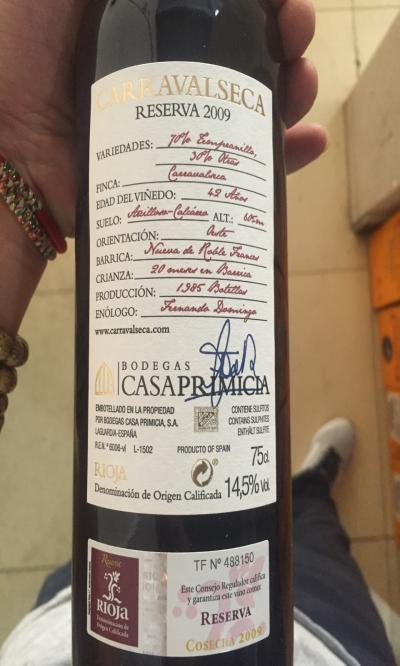 CARRAVALSECA
RESERVA 2009
VARIEDADES: 70% Tempranillo,
30% Otras
FINCA: Carravalseca
EDAD DEL VIÑEDO: 42 Años
SUELO: Arcilloso-Calcáreo ALT.: 605m
ORIENTACIÓN: Oeste
BARRICA: Nueva de Roble Frances
CRIANZA: 20 meses en Barrica
PRODUCCIÓN: 1985 Botellas
ENÓLOGO: Fernando Domingo
www.carravalseca.com
BODEGAS
CASAPRIMICIA
EMBOTELLADO EN LA PROPIEDAD
POR BODEGAS CASA PRIMICIA, S.A.
LAGUARDIA-ESPAÑA
CONTIENE SULFITOS
CONTAINS SULPHITES
ENTHÄLT SULFITE
R.E.N.º 6006-vi L-1502 PRODUCT OF SPAIN 75cl.
RIOJA
Denominación de Origen Calificada 14,5% Vol.
Reserva
RIOJA
Denominación de
Origen Calificada
TF Nº 488150
Este Consejo Regulador califica
y garantiza este vino como:
RESERVA
COSECHA 2009